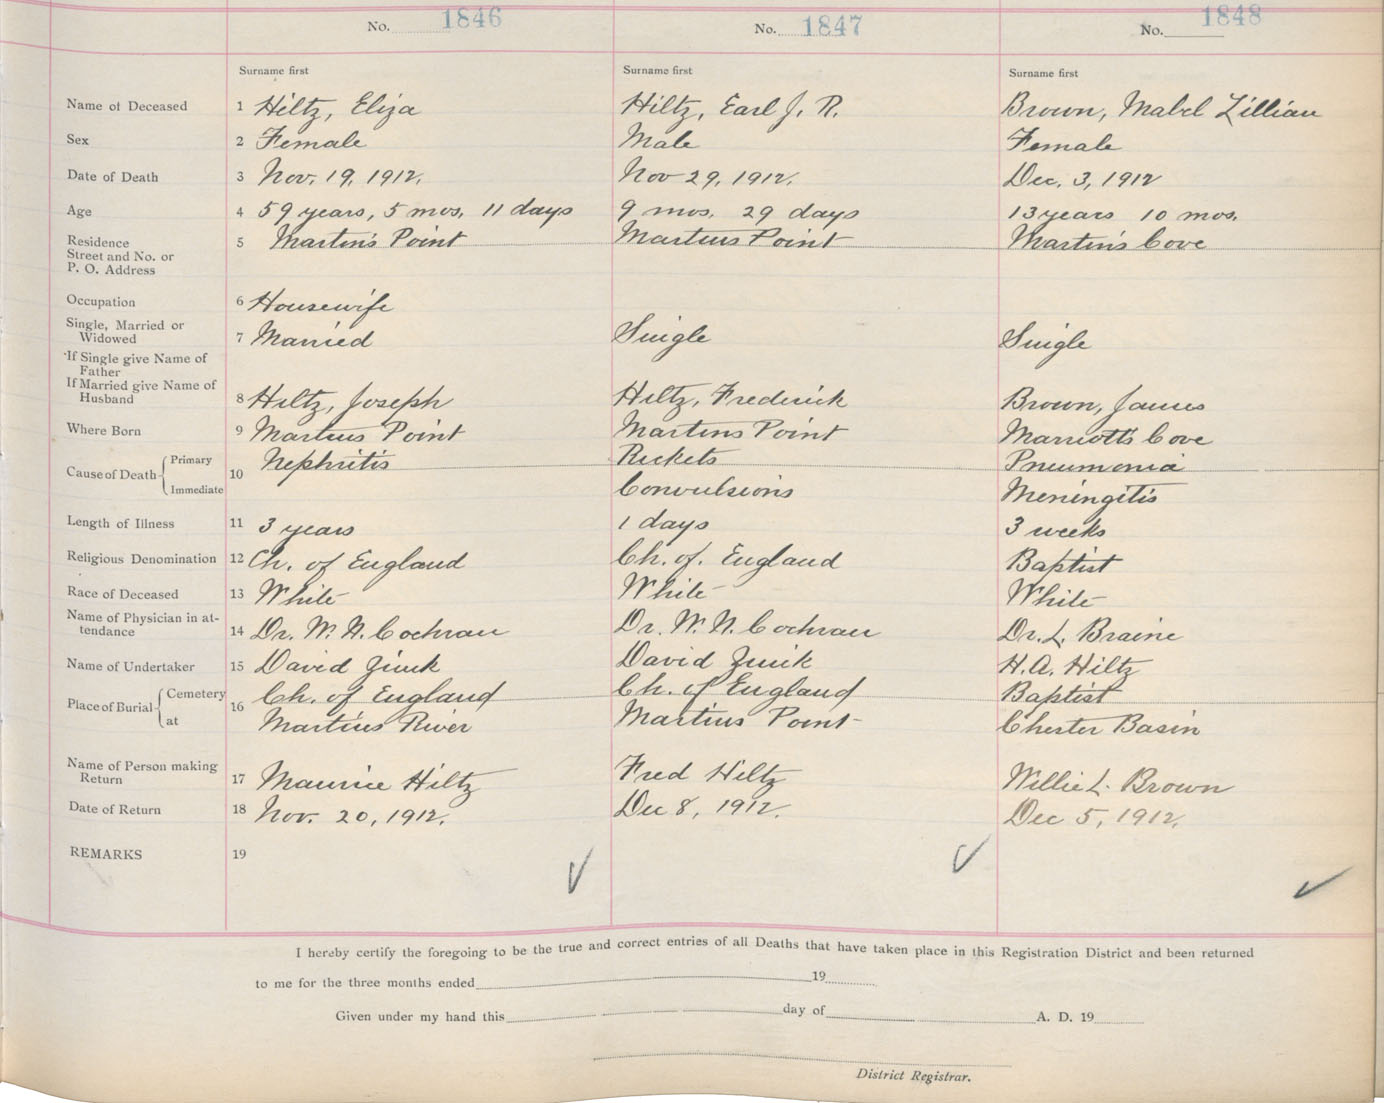 No. 1846 No. 1847 No. 1848
Surname first Surname first Surname first
Name of Deceased 1 Hiltz, Eliza Hiltz, Earl J. R. Brown, Mabel Lillian
Sex 2 Female Male Female
Date of Death 3 Nov. 19, 1912. Nov 29, 1912. Dec. 3, 1912
Age 4 59 years, 5 mos. 11 days 9 mos. 29 days 13 years 10 mos.
Residence
Street and No. or 5 Martin's Point Martins Point Martin's Cove
P. O. Address
Occupation 6 Housewife
Single, Married or
Widowed 7 Married Single Single
If Single give Name of
Father
If Married give Name of
Husband 8 Hiltz, Joseph Hiltz, Frederick Brown, James
Where Born 9 Martins Point Martins Point Marriott's Cove
Cause of Death Primary 10 Nephritis Rickets Pneumonia
Immediate Convulsions Meningitis
Length of Illness 11 3 years 1 days 3 weeks
Religious Denomination 12 Ch. of England Ch. of. England Baptist
Race of Deceased 13 White White White
Name of Physician in at-
tendance 14 Dr. W. N. Cochran Dr. W. N. Cochran Dr. L. Braine
Name of Undertaker 15 David Zink David Zink H. A. Hiltz
Place of Burial Cemetery 16 Ch. of England Ch. of England Baptist
at Martins River Martins Point Chester Basin
Name of Person making
Return 17 Maurice Hiltz Fred Hiltz Willie L. Brown
Date of Return 18 Nov. 20, 1912. Dec 8, 1912. Dec 5, 1912.
REMARKS 19
I hereby certify the foregoing to be the true and correct entries of all Deaths that have taken place in this Registration District and been returned
to me for the three months ended 19
Given under my hand this day of A. D. 19
District Registrar.